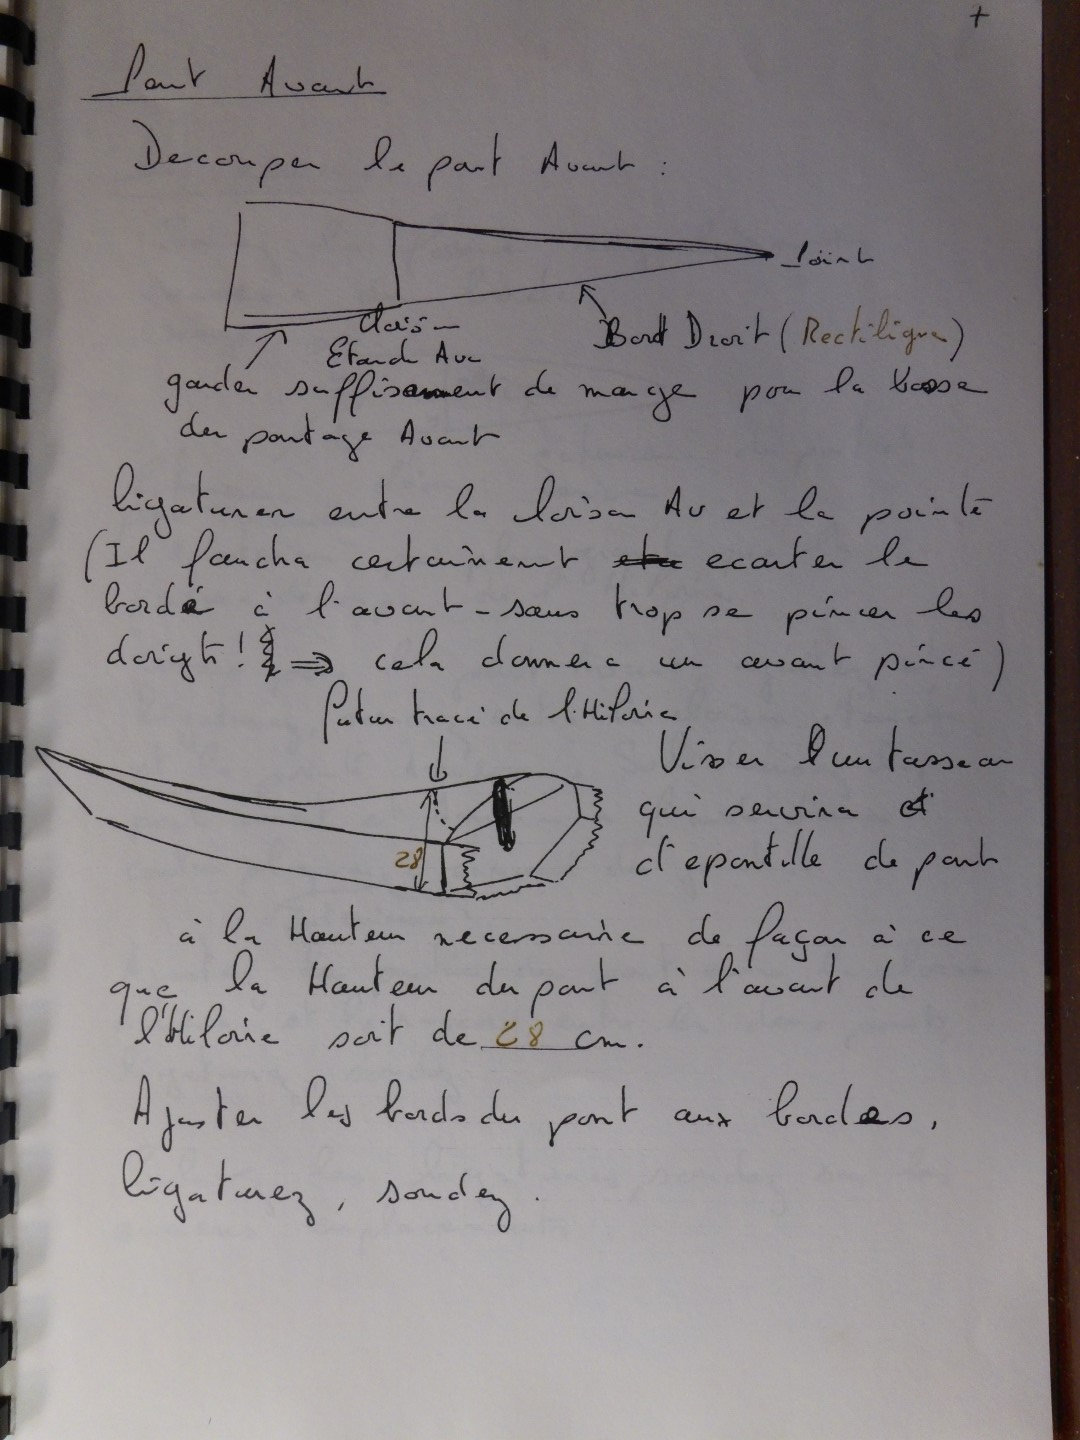 +
Pont Avant
Decouper le pont Avant :
Pointe
Bord Droit (Rectiligne)
Cloison
Etanche Av
garder suffisamment de marge pour la base
du pontage Avant
ligaturer entre la cloison Av et la pointe
(Il faudra certainement ecarter le
bordé à l'avant - sans trop se pincer les
doigts ! ⇒ cela donnera un avant pincé)
futur tracé de l'Hiloire
Visser un tasseau
qui servira
d'epontille de pont
28
à la Hauteur necessaire de façon à ce
que la Hauteur du pont à l'avant de
l'Hiloire soit de 28 cm.
Ajuster les bords du pont aux bordes,
ligaturez, soudez.